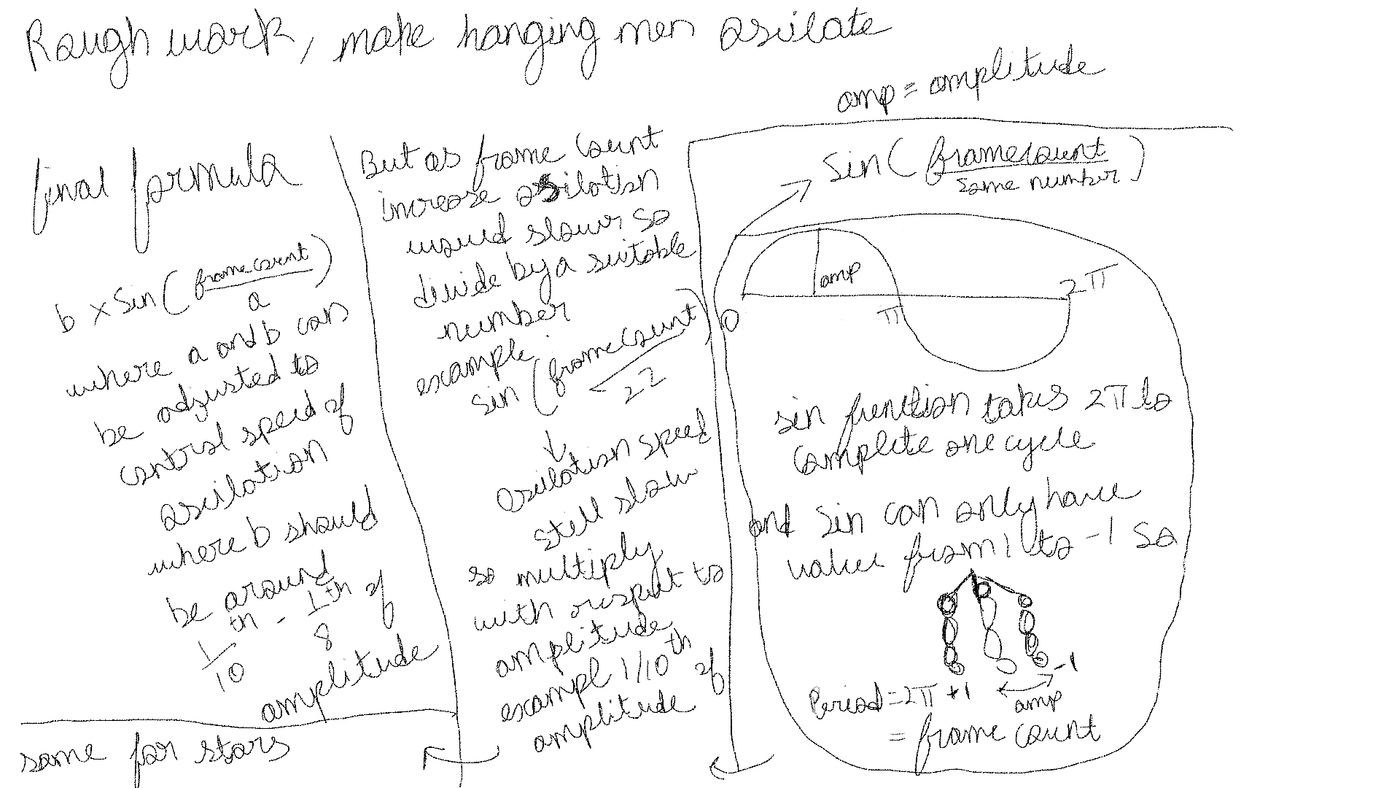 Rough work, make hanging men osilate
amp = amplitude
final formula
b × Sin( framecount / a )
where a and b can
be adjusted to
control speed of
osilation
where b should
be around
1/10 th - 1/8 th of
amplitude
same for stars
But as frame count
increase osilation
would slower so
divide by a suitable
number
example:
sin ( framecount / 22 )
↓
Osilation speed
still slow
so multiply
with respect to
amplitude
exampl 1/10th of
amplitude
Sin( framecount / some number )
amp
0
π
2π
sin function takes 2π to
complete one cycle
and sin can only have
value from 1 to -1 so
+1
-1
amp
Period = 2π
= frame count